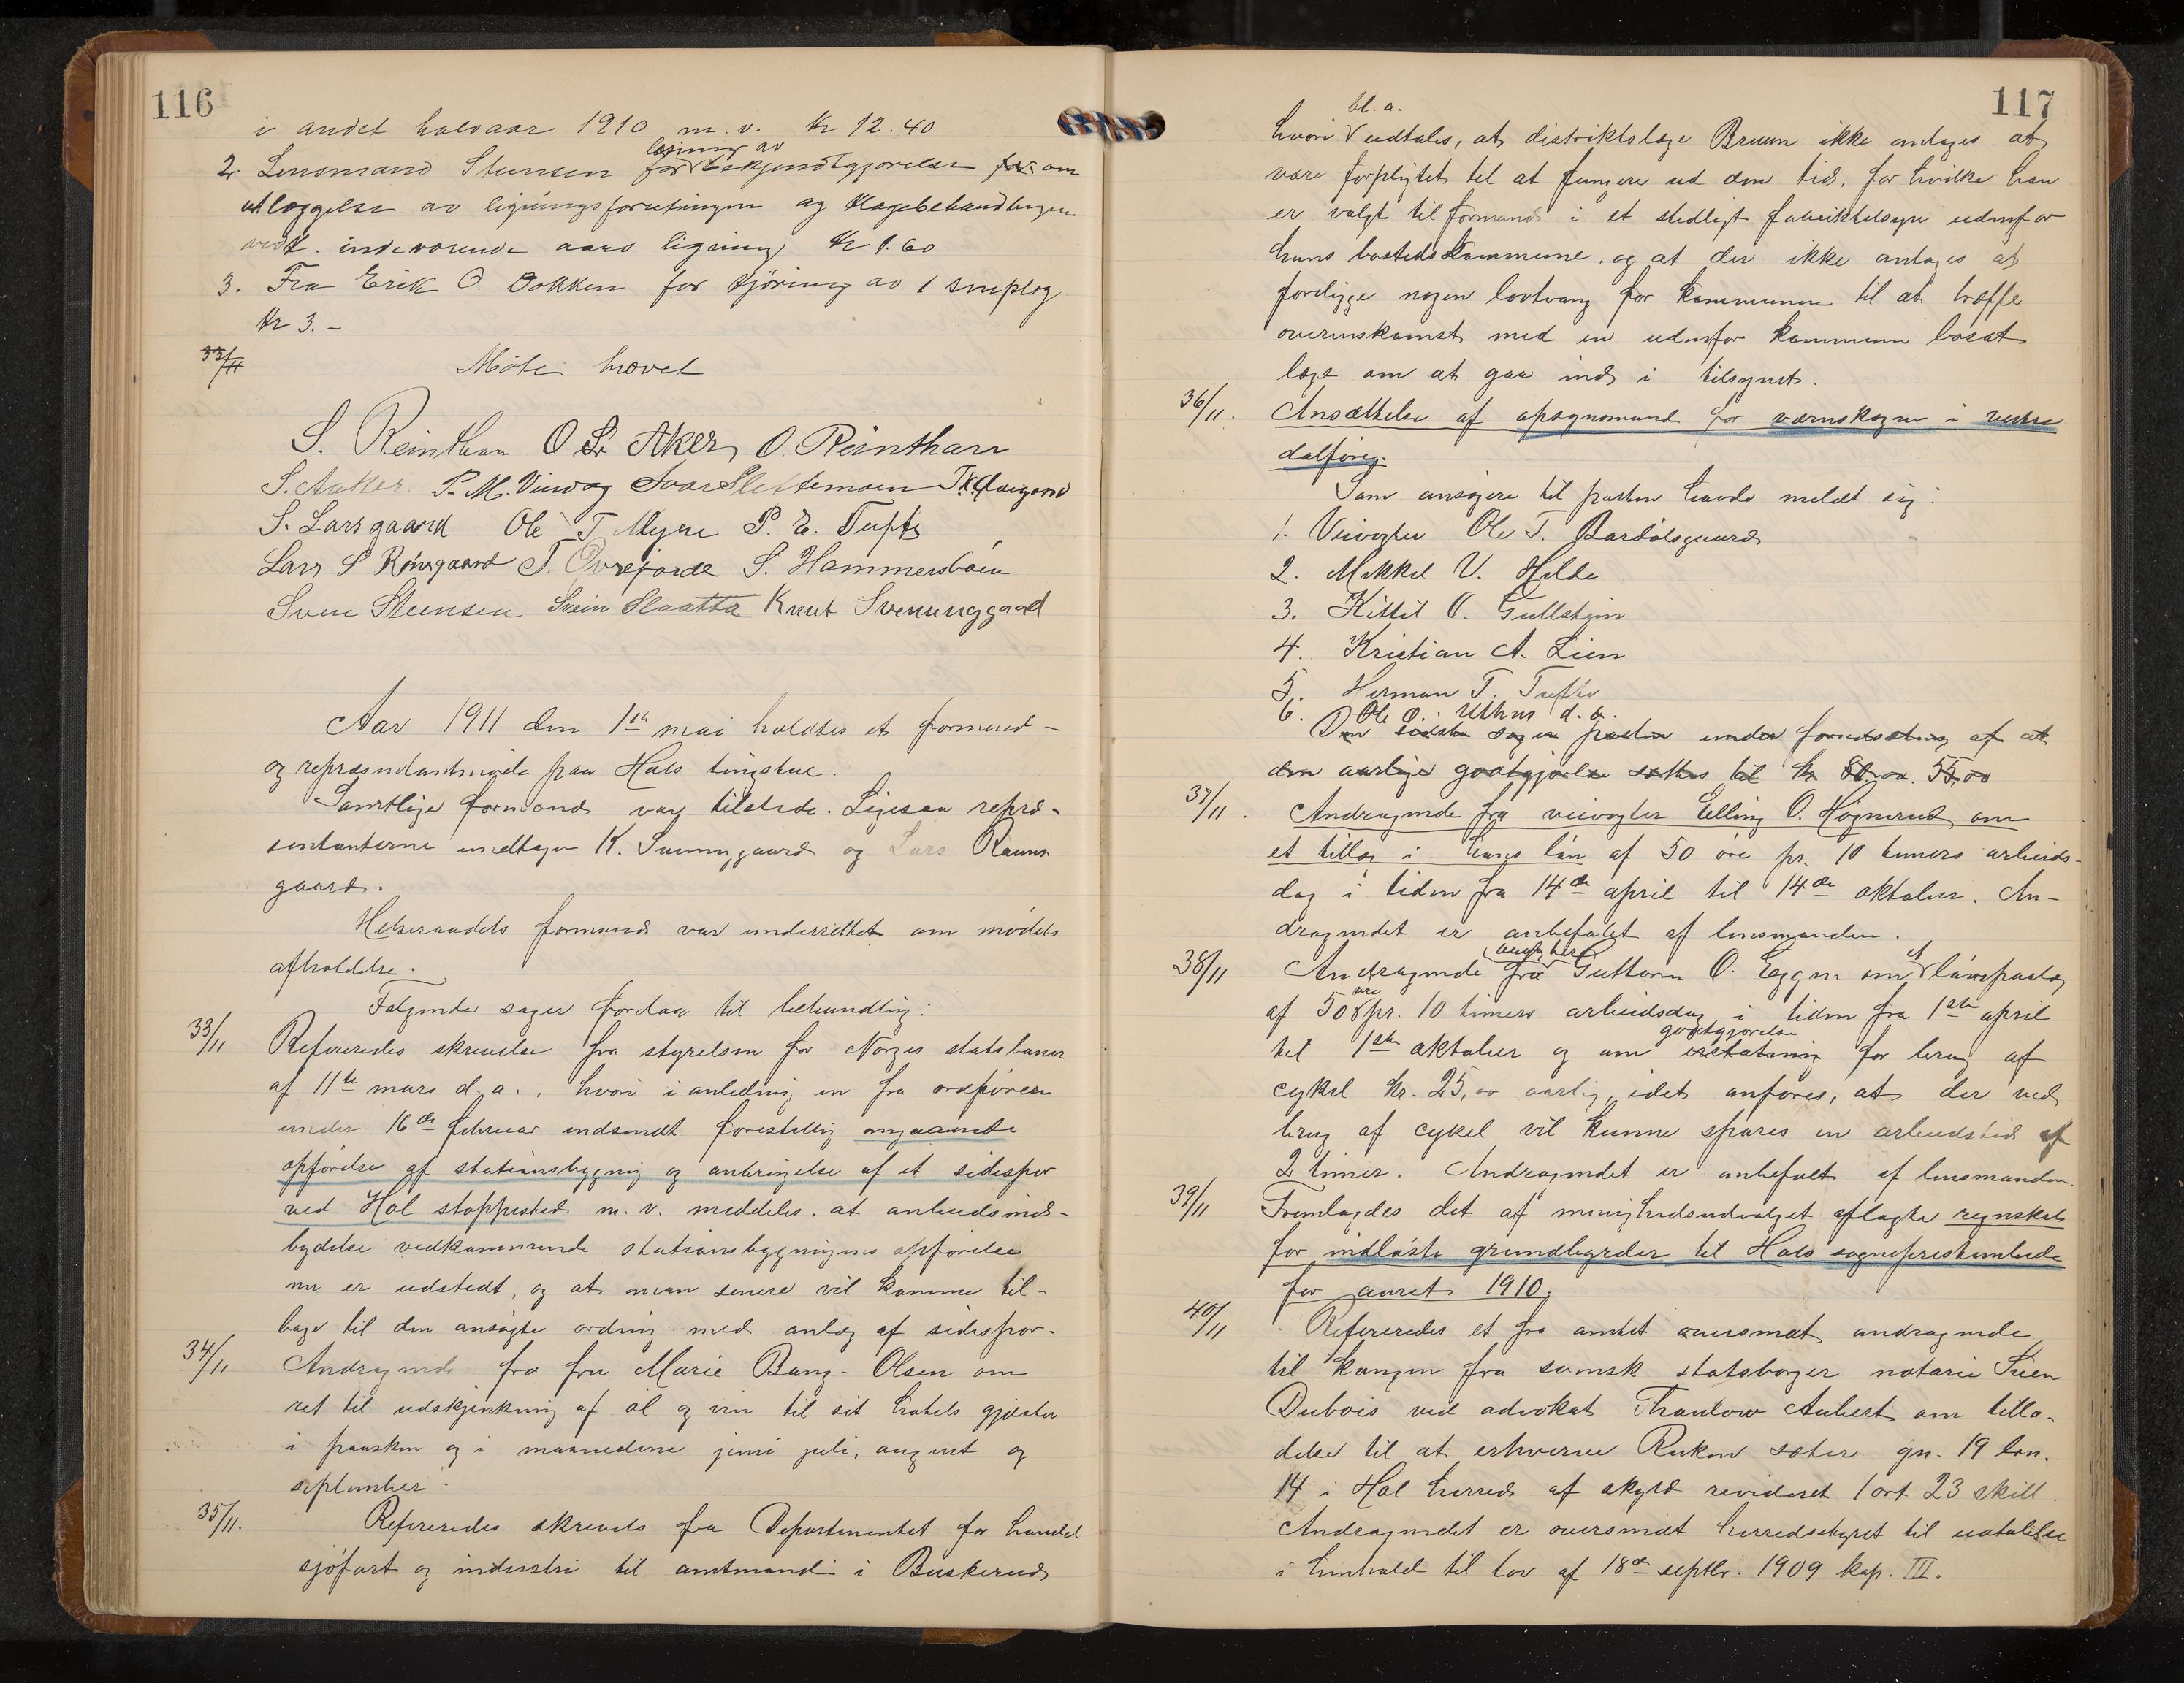 116
i andet halvaar 1910 m.v. kr 12.40
2. Lensmand Steensen for læsning av bekjendtgjørelse om
utlæggelse av ligningsforretningen og klagebehandlingen
vedk. indeværende aars ligning kr 1.60
3. Fra Erik O. Dokken for kjöring av 1 sneplog
kr 3.–
33/11
Møtet hævet
S. Reinthon O. L. Aker O. Reinthon
S. Aaker. P. M. Vindog Ivar Slettemoen
S. Larsgaard Ole T Myre P. E. Tufte
Lars S Rønsgaard T. Øvrejorde S. Hammersbøen
Sven Steensen Svein Slaatta Knut Sveinunggaard
Aar 1911 den 1ste mai holdtes et formand-
og repræsentantmøde paa Hols tingstue.
Samtlige formænd var tilstede. Ligesaa repræ-
sentanterne undtagen K. Sveinunggaard og Lars Rauns-
gaard.
Helseraadets formand var underrettet om mødets
afholdelse.
Følgende sager forelaa til behandling:
33/11
Refereredes skrivelse fra styrelsen for Norges statsbaner
af 11te mars d.a., hvori i anledning en fra ordføreren
under 16de februar indsendt forestilling angaaende
opførelse af stationsbygning og anbringelse af et sidespor
ved Hol stoppested m.v. meddeles, at anbudsind-
bydelse vedkommende stationsbygningens opførelse
nu er udstedt, og at man senere vil komme til-
bage til den ansøgte ordning med anlæg af sidespor.
34/11
Andragende fra fru Marie Bang-Olsen om
ret til udskjenkning af øl og vin til sit hotels gjæster
i paasken og i maanederne juni juli, august og
september.
35/11.
Refereredes skrivels fra Departementet for handel
sjøfart og industri til amtmanden i Buskerud
117
hvori bl.a. udtales, at distriktslæge Bruun ikke antages at
være forpligtet til at fungere ud den tid, for hvilke han
er valgt til formand i et stedligt fabriktilsyn udenfor
hans bostedskommune, og at der ikke antages at
foreligge nogen lovtvang for kommunen til at træffe
overenskomst med en udenfor kommunen bosat
læge om at gaa ind i tilsynet.
36/11.
Ansættelse af opsynsmand for vernskogen i vestre
dalføre.
Som ansøgere til posten havde meldt sig:
1. Veivogter Ole T. Bardølsgaard
2. Mikkel V. Hilde
3. Kittil O. Gullstein
4. Kristian A. Lien
5. Herman T. Tufte
6. Ole O. Uthus d.æ.
Den sidste søger posten under forudsætning af at
den aarlige godtgjørelse sættes til kr 80,00. 55,00
37/11.
Andragende fra veivogter Elling O. Høgnerud om
et tillæg i hans løn af 50 øre pr. 10 timers arbeids-
dag i tiden fra 14de april til 14de oktober. An-
dragendet er anbefalet af lensmanden.
38/11
Andragende fra Guttorm O. Eggen om et lønspaalæg
af 50 øre pr. 10 timers arbeidsdag i tiden fra 1ste april
til 1ste oktober og om erstatning godtgjørelse for brug af
cykel kr. 25,00 aarlig, idet anføres, at der ved
brug af cykel vil kunne spares en arbeidstid af
2 timer. Andragendet er anbefalt af lensmanden.
39/11
Fremlagdes det af menighedsudvalget aflagte regnskab
for indløste grundbyrder til Hols sogneprestembede
for aaret 1910.
40/11
Refereredes et fra amtet oversendt andragende
til kongen fra svensk statsborger notarie Sven
Dubois ved advokat Thaulow Aubert om tilla-
delse til at erhverve Rukon sæter gn. 19 brn.
14 i Hol herred af skyld revideret 1 ort 23 skill.
Andragendet er oversendt herredsstyret til udtalelse
i henhold til lov af 18de septbr. 1909 kap. III.